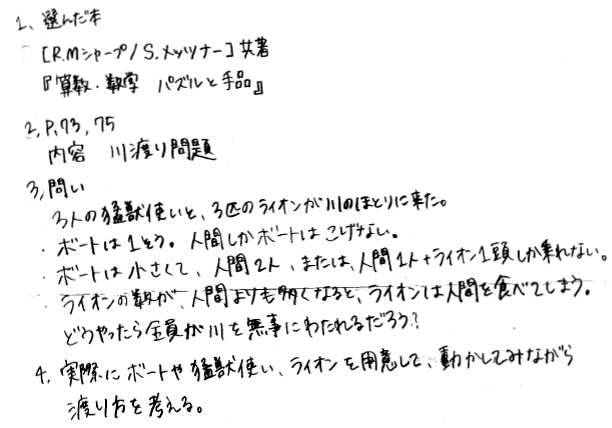 1、選んだ本
[R.Mシャープ/S.メッツナー]共著
『算数・数学 パズルと手品』
2、P,73,75
内容 川渡り問題
3、問い
3人の猛獣使いと、3匹のライオンが川のほとりに来た。
・ボートは1そう。人間しかボートはこげない。
・ボートは小さくて、人間2人、または、人間1人+ライオン1頭しか乗れない。
・ライオンの数が、人間よりも多くなると、ライオンは人間を食べてしまう。
どうやったら全員が川を無事にわたれるだろう?
4、実際にボートや猛獣使い、ライオンを用意して、動かしてみながら
渡り方を考える。